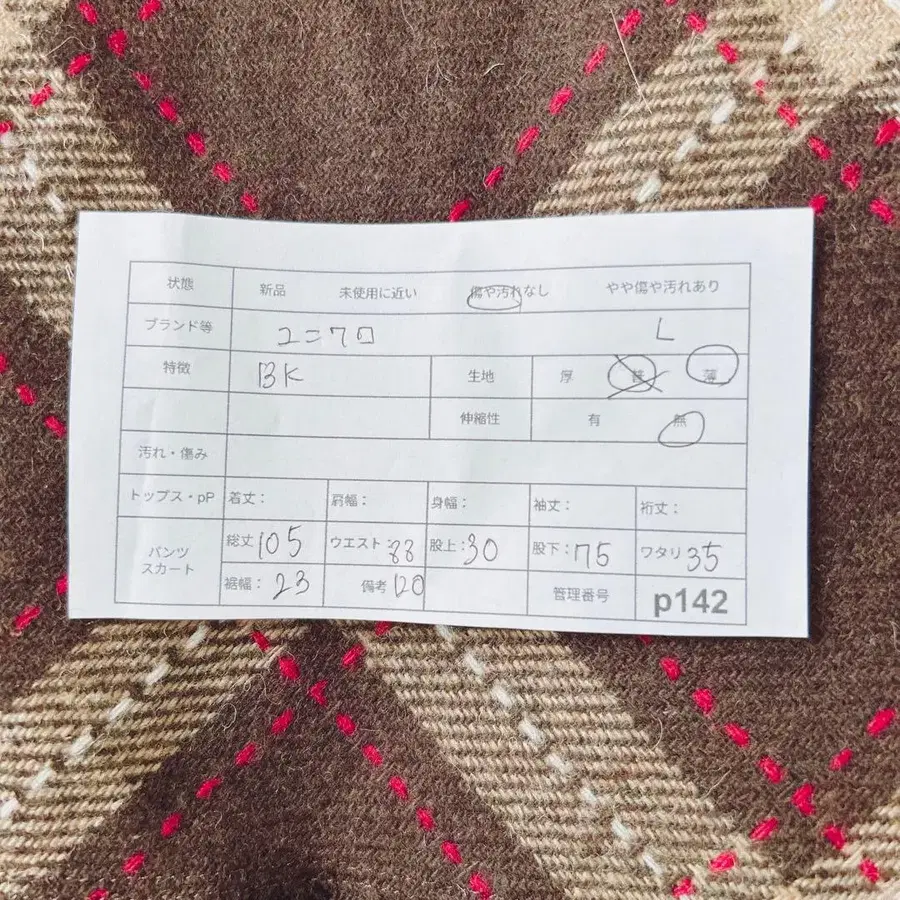 状態 新品 未使用に近い 傷や汚れなし やや傷や汚れあり
ブランド等 ユニクロ L
特徴 BK 生地 厚 普 薄
伸縮性 有 無
汚れ・傷み
トップス・pP 着丈： 肩幅： 身幅： 袖丈： 裄丈：
パンツ スカート 総丈105 ウエスト：88 股上：30 股下：75 ワタリ35
裾幅：23 備考120 管理番号 p142